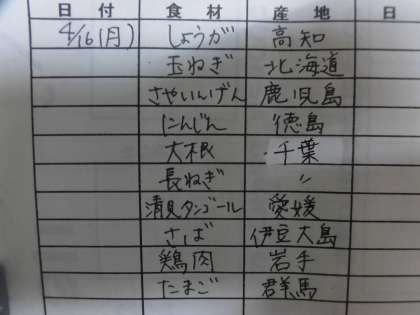 日付 食材 産地 日
4/16(月) しょうが 高知
玉ねぎ 北海道
さやいんげん 鹿児島
にんじん 徳島
大根 千葉
長ねぎ 〃
清見タンゴール 愛媛
さば 伊豆大島
鶏肉 岩手
たまご 群馬